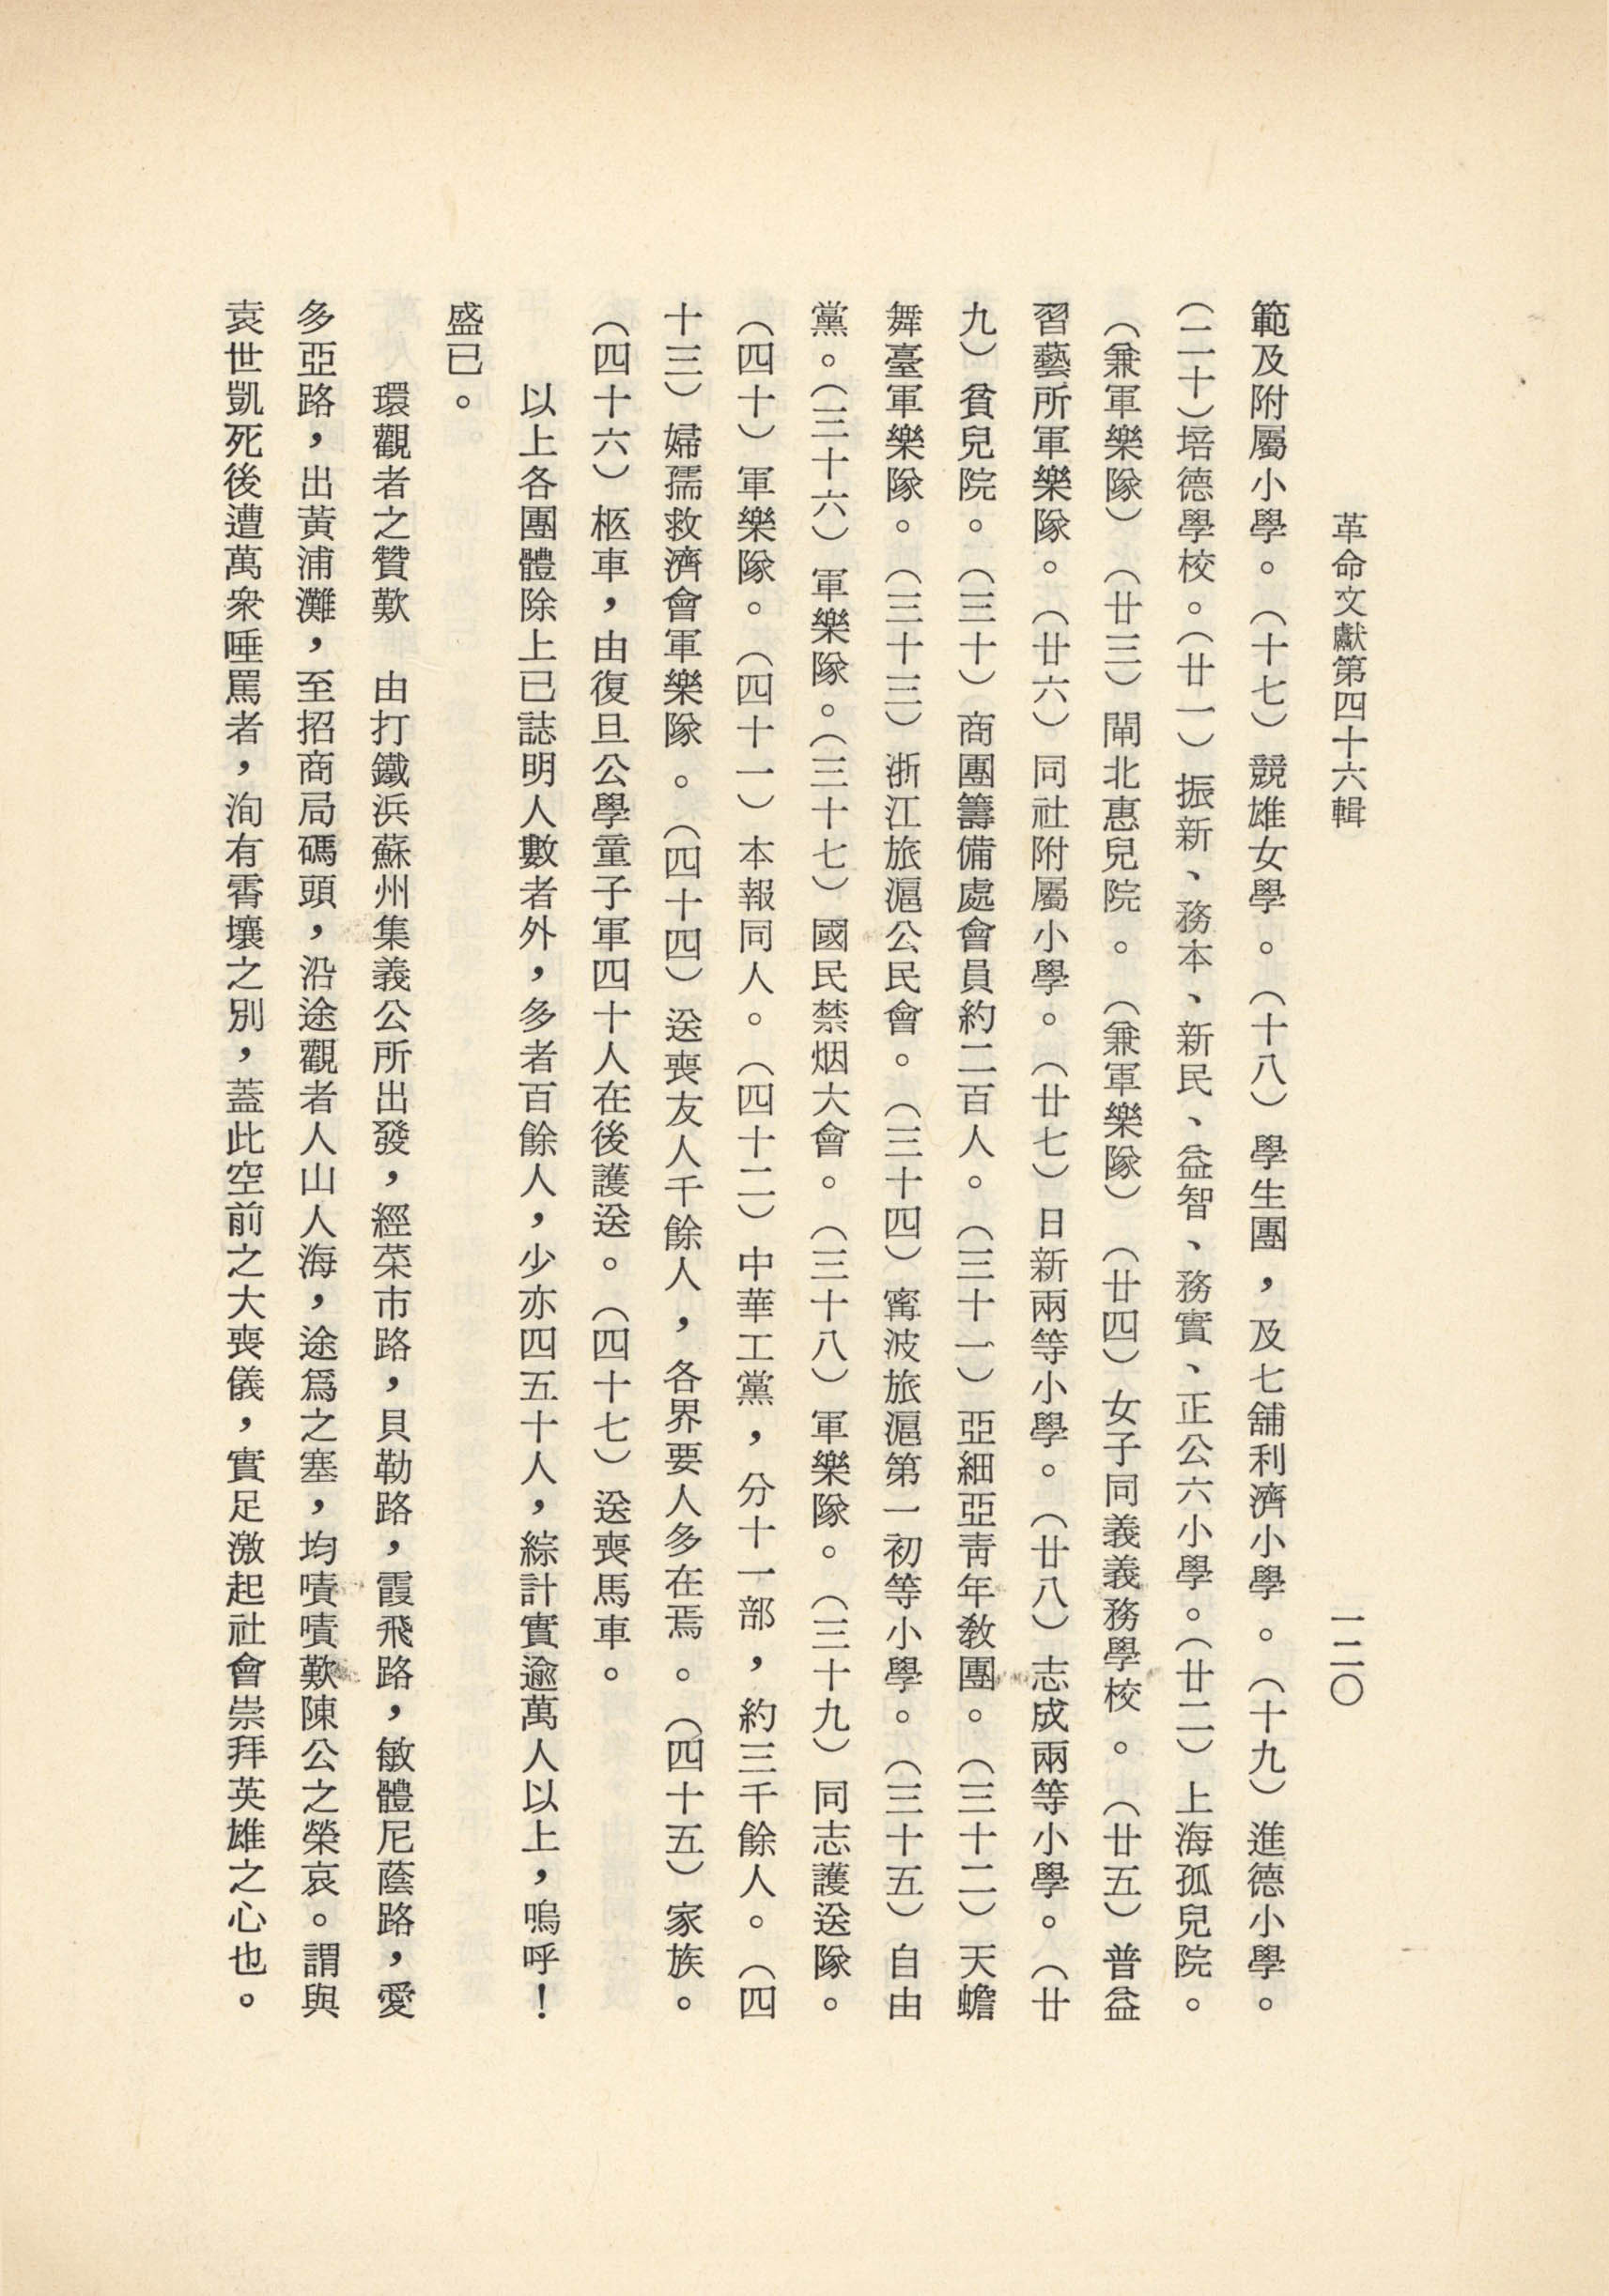 革命文獻第四十六輯
一二〇
範及附屬小學。（十七）競雄女學。（十八）學生團，及七舖利濟小學。（十九）進德小學。
（二十）培德學校。（廿一）振新、務本、新民、益智、務實、正公六小學。（廿二）上海孤兒院。
（兼軍樂隊）（廿三）閘北惠兒院。（兼軍樂隊）（廿四）女子同義義務學校。（廿五）普益
習藝所軍樂隊。（廿六）同社附屬小學。（廿七）日新兩等小學。（廿八）志成兩等小學。（廿
九）貧兒院。（三十）商團籌備處會員約二百人。（三十一）亞細亞靑年敎團。（三十二）天蟾
舞臺軍樂隊。（三十三）浙江旅滬公民會。（三十四）甯波旅滬第一初等小學。（三十五）自由
黨。（三十六）軍樂隊。（三十七）國民禁烟大會。（三十八）軍樂隊。（三十九）同志護送隊。
（四十）軍樂隊。（四十一）本報同人。（四十二）中華工黨，分十一部，約三千餘人。（四
十三）婦孺救濟會軍樂隊。（四十四）送喪友人千餘人，各界要人多在焉。（四十五）家族。
（四十六）柩車，由復旦公學童子軍四十人在後護送。（四十七）送喪馬車。
以上各團體除上已誌明人數者外，多者百餘人，少亦四五十人，綜計實逾萬人以上，嗚呼！
盛已。
環觀者之贊歎　由打鐵浜蘇州集義公所出發，經菜市路，貝勒路，霞飛路，敏體尼蔭路，愛
多亞路，出黃浦灘，至招商局碼頭，沿途觀者人山人海，途爲之塞，均嘖嘖歎陳公之榮哀。謂與
袁世凱死後遭萬衆唾罵者，洵有霄壤之別，蓋此空前之大喪儀，實足激起社會崇拜英雄之心也。